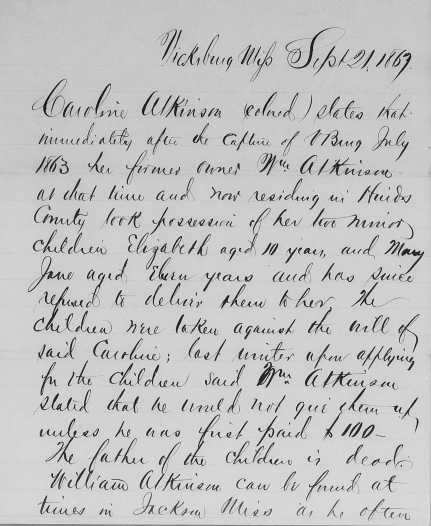 Vicksburg, Miss Sept 21, 1867.
Caroline Atkinson (colored) states that
immediately after the capture of VBurg July
1863 her former owner Wm Atkinson
at that time and now residing in Hinds
County took possession of her two minor
children Elizabeth aged 10 years, and Mary
Jane aged years and has since
refused to deliver them to her. The
children were taken against the will of
said Caroline; last winter upon applying
for the children said Wm Atkinson
stated that he would not give them up,
unless he was first paid $100—
The father of the children is dead.
William Atkinson can be found at
times in Jackson Miss as he often